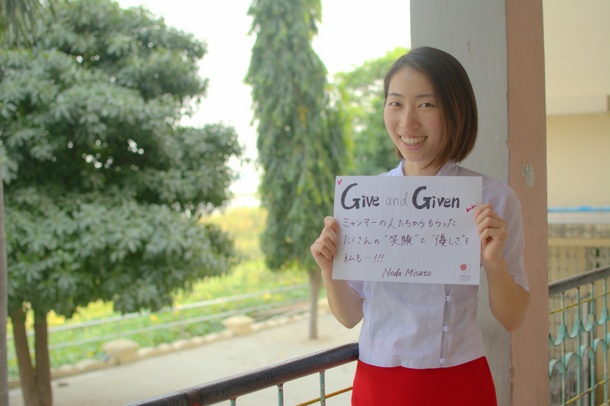 Give and Given
ミャンマーの人たちからもらった
たくさんの"笑顔"と"優しさ"を
私も…!!!
Noda Misato